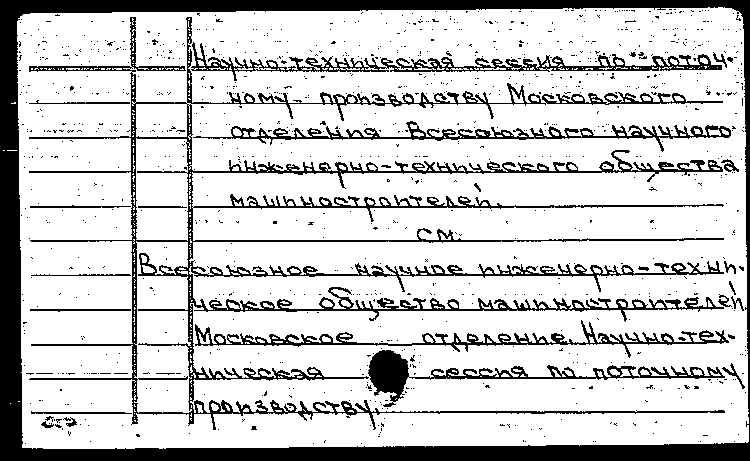 Научно-техническая сессия по поточ-
ному производству Московского
отделения Всесоюзного научного
инженерно-технического общества
машиностроителей.
см.
Всесоюзное научное инженерно-техни-
ческое общество машиностроителей
Московское отделение. Научно-тех-
ническая сессия по поточному
производству.